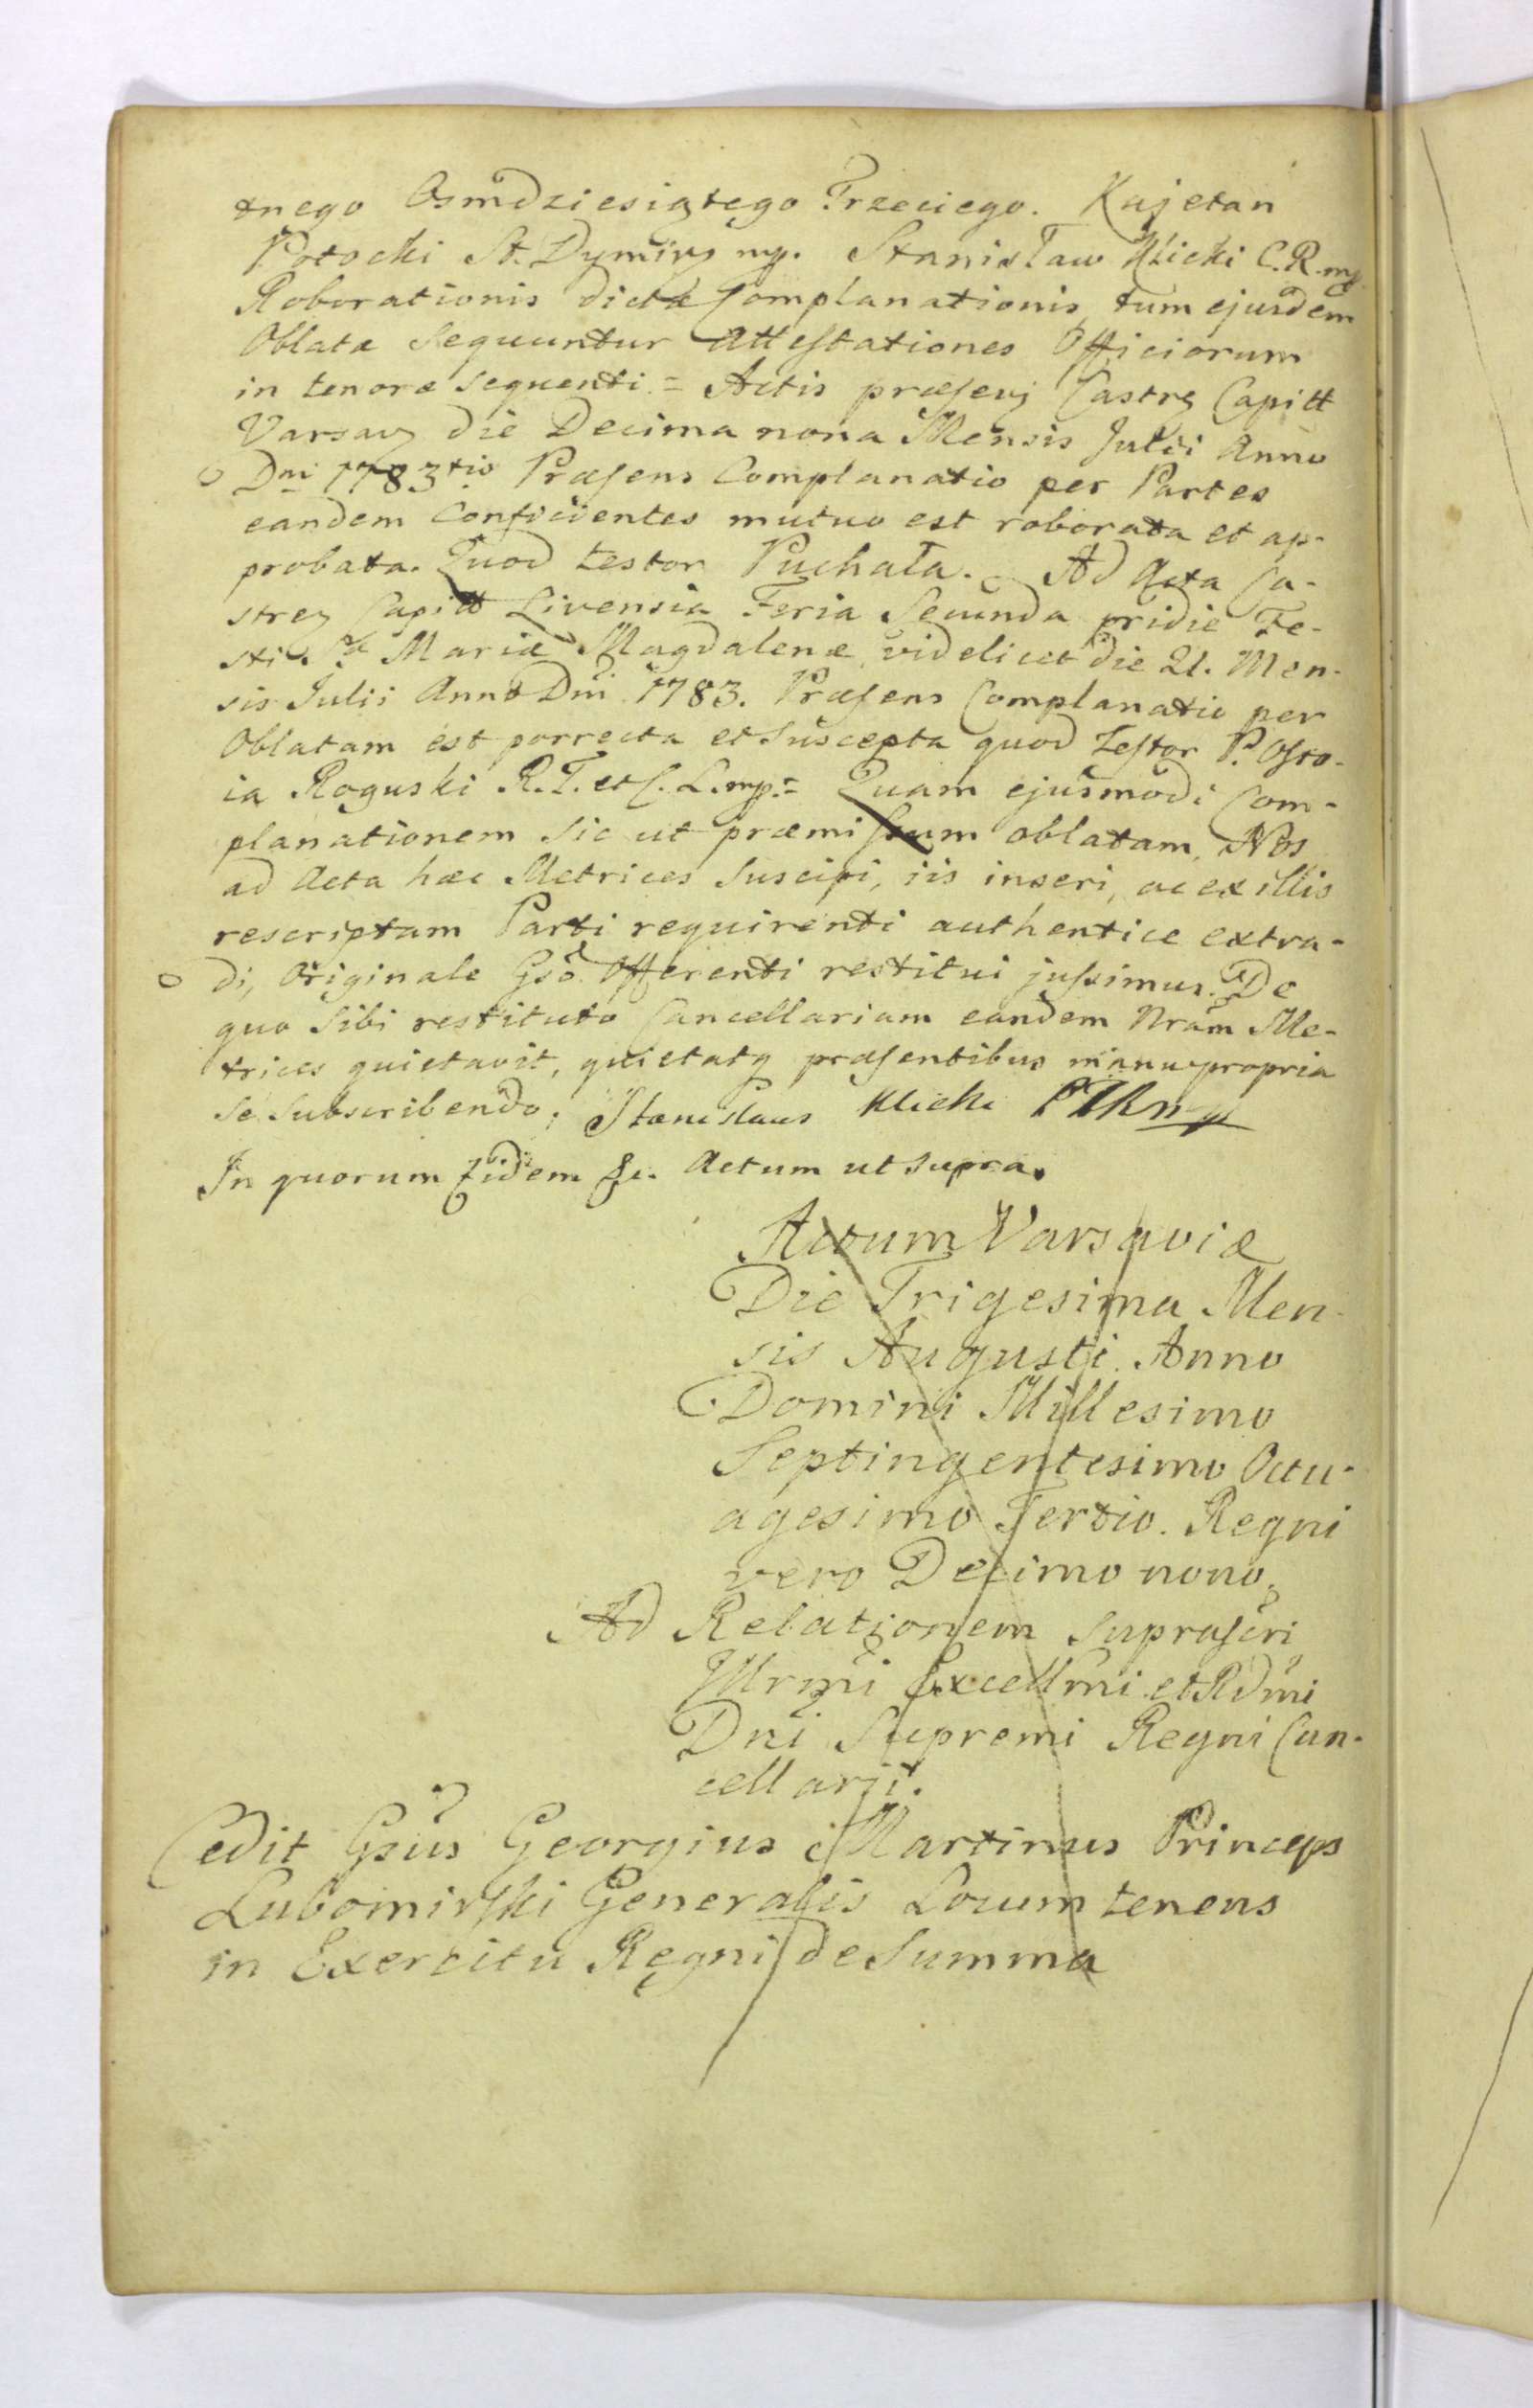 tnego Osmdziesiątego Trzeciego. Kajetan
Potocki St. Dymirs mp. Stanisław Klicki C.R. mp.
Roborationis dictæ Complanationis, tum ejusdem
Oblatæ Sequuntur Attestationes Officiorum
in tenore sequenti = Actis præsen Castren Capitt
Varsav die Decima nona Mensis Julii Anno
Dni 1783tio Præsens Complanatio per Partes
eandem Conficientes mutuo est roborata et ap-
probata. Quod testor Puchała. Ad Acta Ca-
stren Capitt Livensia Feria Secunda pridie Fe-
sti Stæ Mariæ Magdalenæ videlicet die 21. Men-
sis Julii Anno Dni 1783. Præsens Complanatio per
Oblatam est porrecta et suscepta quod Testor P. Osto-
ia Roguski R.T. et C. L. mp. = Quam ejusmodi Com-
planationem sic ut præmissum oblatam, Nos
ad Acta hæc Metrices Suscipi, iis inseri, ac ex illis
rescriptam Parti requirenti authentice extra-
di, Originale Gso Offerenti restitui jussimus. De
quo Sibi restituto Cancellariam eandem Nram Me-
trices quietavit, quietatq præsentibus manu propria
se subscribendo; Stanislaus Klicki
In quorum fidem &c. Actum ut supra.
Actum Varsaviæ
Die Trigesima Men-
sis Augusti Anno
Domini Millesimo
Septingentesimo Octu-
agesimo Tertio. Regni
vero Decimo nono.
Ad Relationem suprascri
Illrmi Excellmi et Rdmi
Dni Supremi Regni Can-
cellarii.
Cedit Gsus Georgius Martinus Princeps
Lubomirski Generalis Locum tenens
in Exercitu Regni de Summa